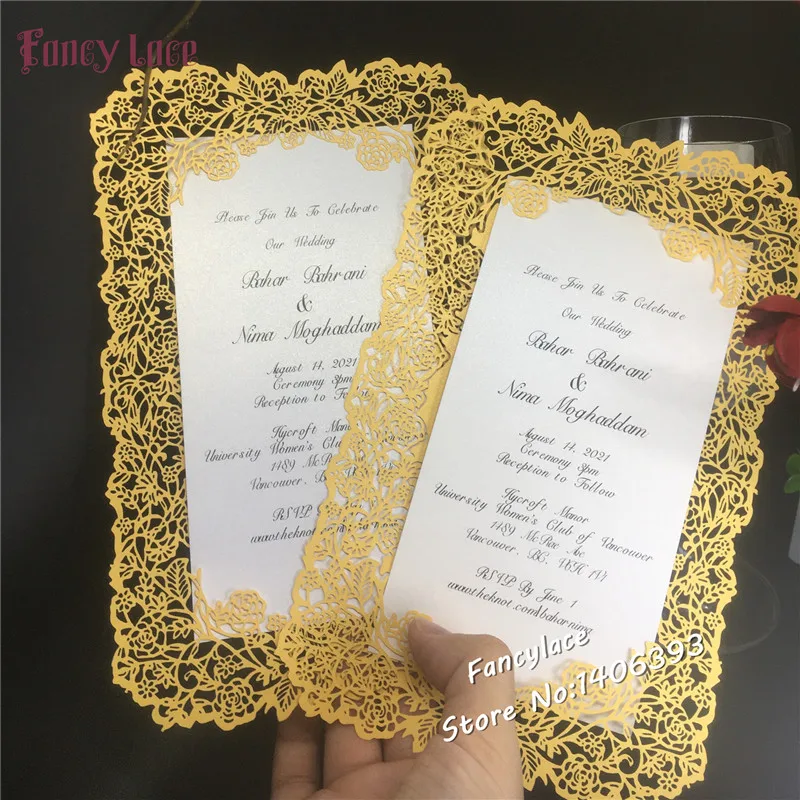 Fancy Lace
Please Join Us To Celebrate
Our Wedding
Bahar Bahrani
&
Nima Moghaddam
August 14, 2021
Ceremony 3pm
Reception to Follow
Hycroft Manor
University Women's Club
1489 McRae
Vancouver, B
RSVP
www.theknot
Please Join Us To Celebrate
Our Wedding
Bahar Bahrani
&
Nima Moghaddam
August 14, 2021
Ceremony 3pm
Reception to Follow
Hycroft Manor
University Women's Club of Vancouver
1489 McRae Ave
Vancouver, BC, V6H 1V4
RSVP By June 1
www.theknot.com/baharnima
Fancylace
Store No:1406393